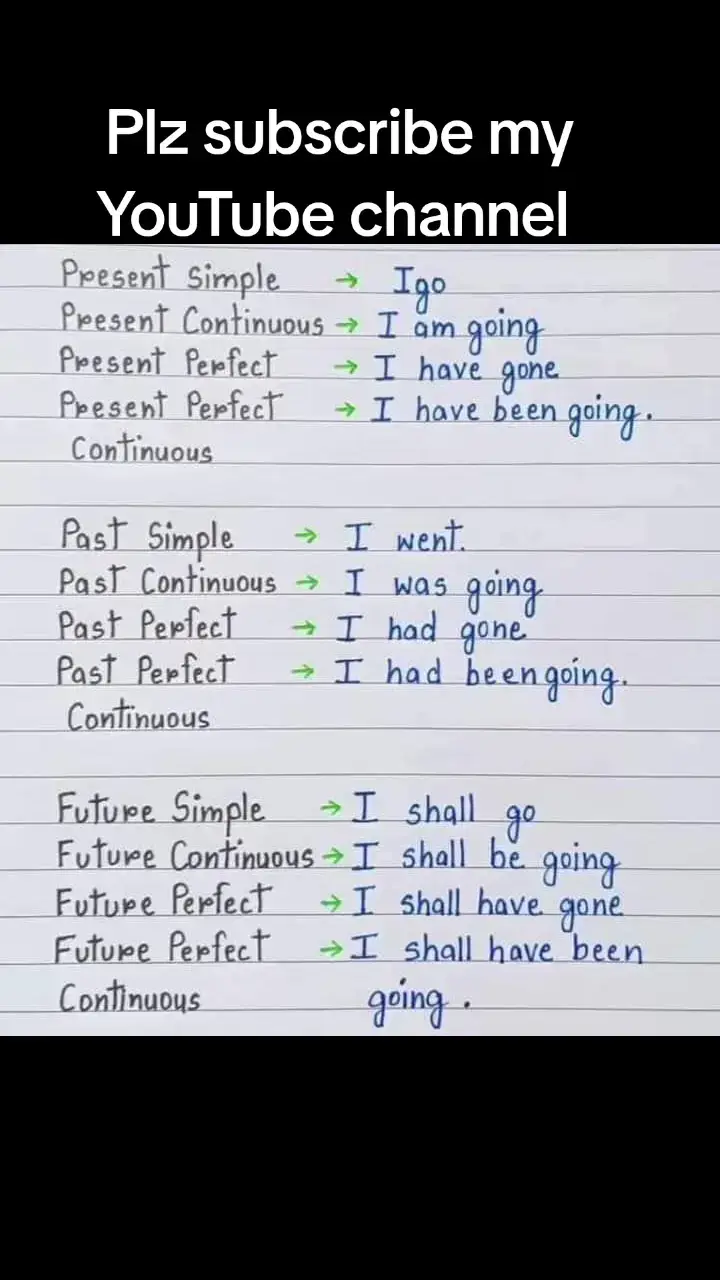 Plz subscribe my
YouTube channel
Present Simple → I go
Present Continuous → I am going
Present Perfect → I have gone
Present Perfect → I have been going.
Continuous
Past Simple → I went.
Past Continuous → I was going
Past Perfect → I had gone
Past Perfect → I had been going.
Continuous
Future Simple → I shall go
Future Continuous → I shall be going
Future Perfect → I shall have gone
Future Perfect → I shall have been
Continuous going.